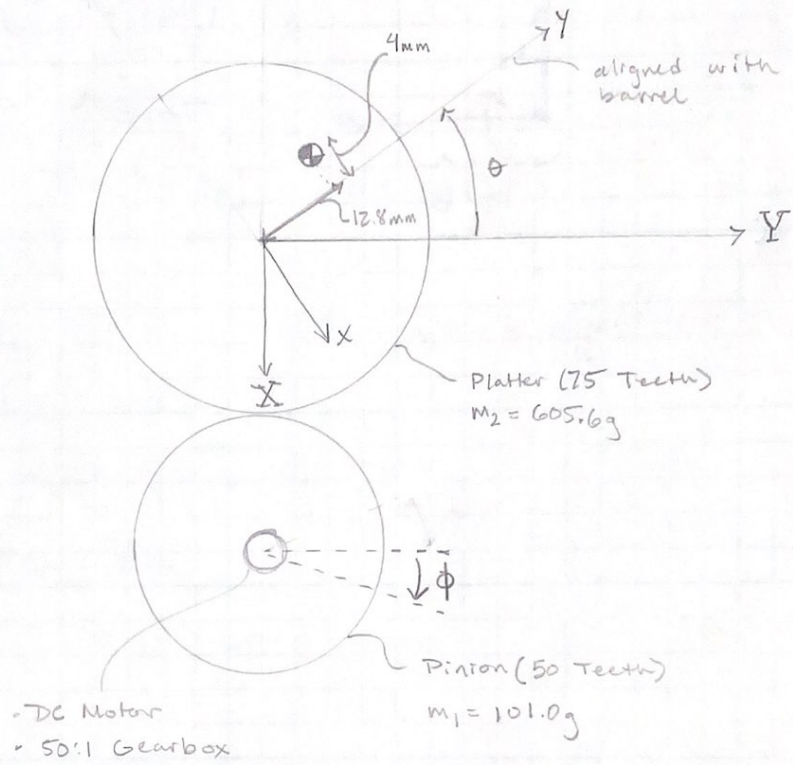 Y
4mm
aligned with
barrel
θ
12.8mm
Y
x
X
Platter (75 Teeth)
m2 = 605.6g
ϕ
Pinion (50 Teeth)
m1 = 101.0g
· DC Motor
· 50:1 Gearbox